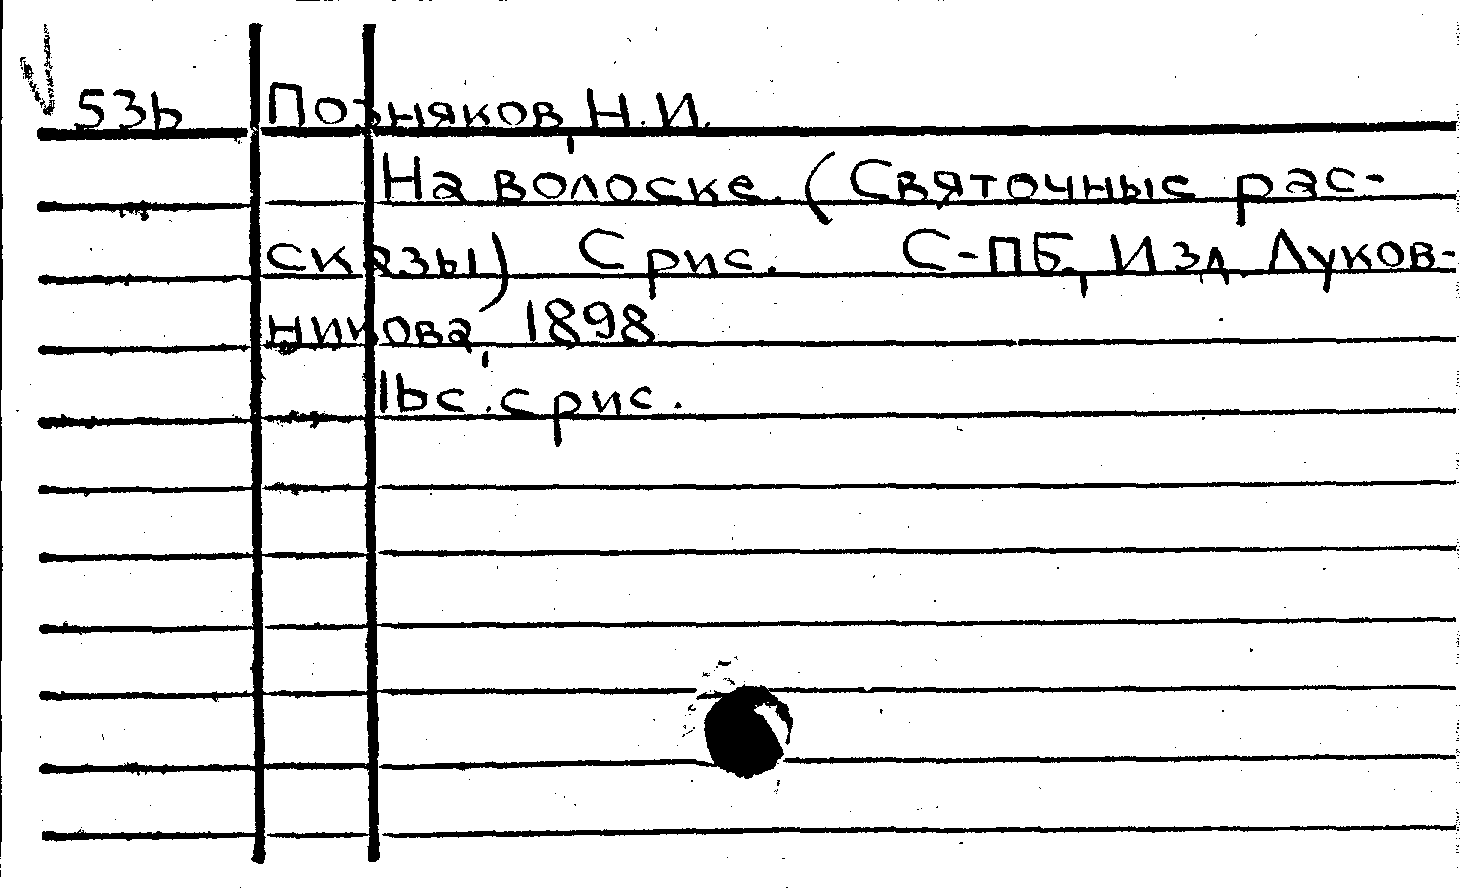 536 Позняков, Н.И.
На волоске. (Святочные рас-
сказы) С рис. С-ПБ, Изд. Луков-
никова, 1898
16с. с рис.